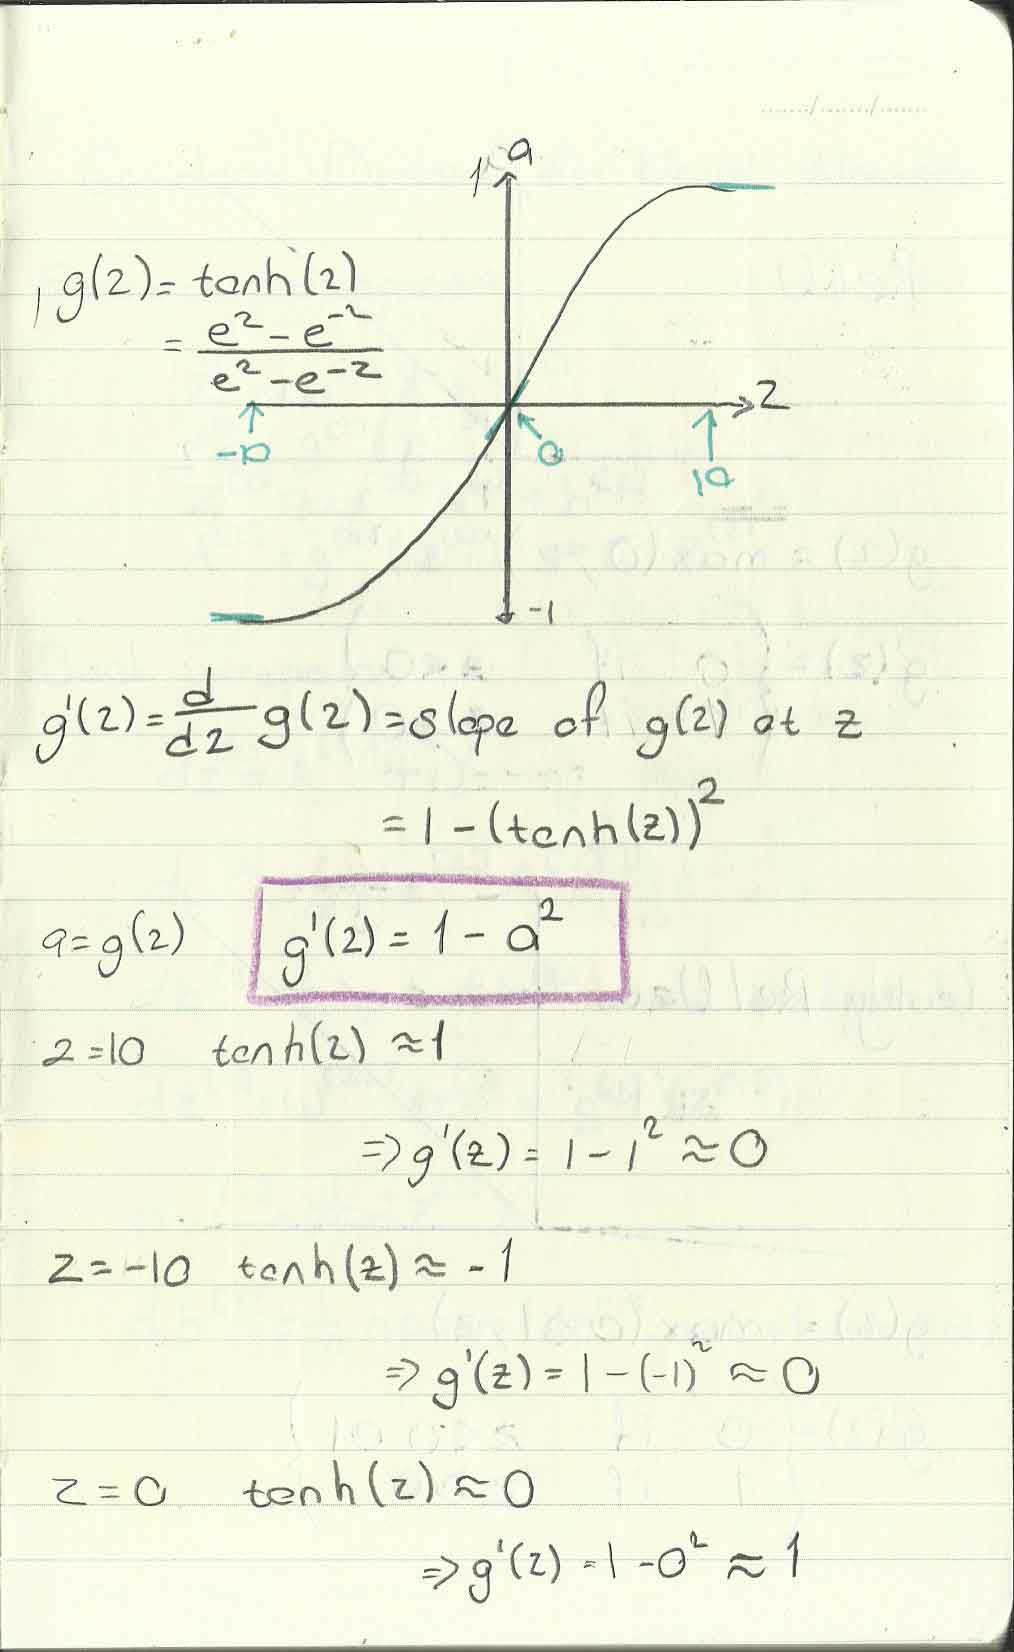 a
1
g(z) = tanh(z)
= e^z - e^-z / e^z - e^-z
z
-10
0
10
-1
g'(z) = d/dz g(z) = slope of g(z) at z
= 1 - (tanh(z))^2
a = g(z) g'(z) = 1 - a^2
z = 10 tanh(z) ≈ 1
=> g'(z) = 1 - 1^2 ≈ 0
z = -10 tanh(z) ≈ -1
=> g'(z) = 1 - (-1)^2 ≈ 0
z = 0 tanh(z) ≈ 0
=> g'(z) = 1 - 0^2 ≈ 1